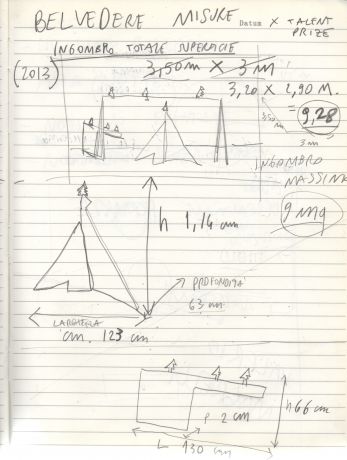 BELVEDERE MISURE Datum X TALENT
PRIZE
INGOMBRO TOTALE SUPERFICIE
(2013) 3,50 m X 3 m
3,20 X 2,90 M.
= 9,28
350 m
3 m
INGOMBRO
MASSIMA
9 mq
h 1,14 cm
PROFONDITA
63 cm
LARGHEZZA
cm. 123 cm
h 66 cm
P 2 cm
L 130 cm